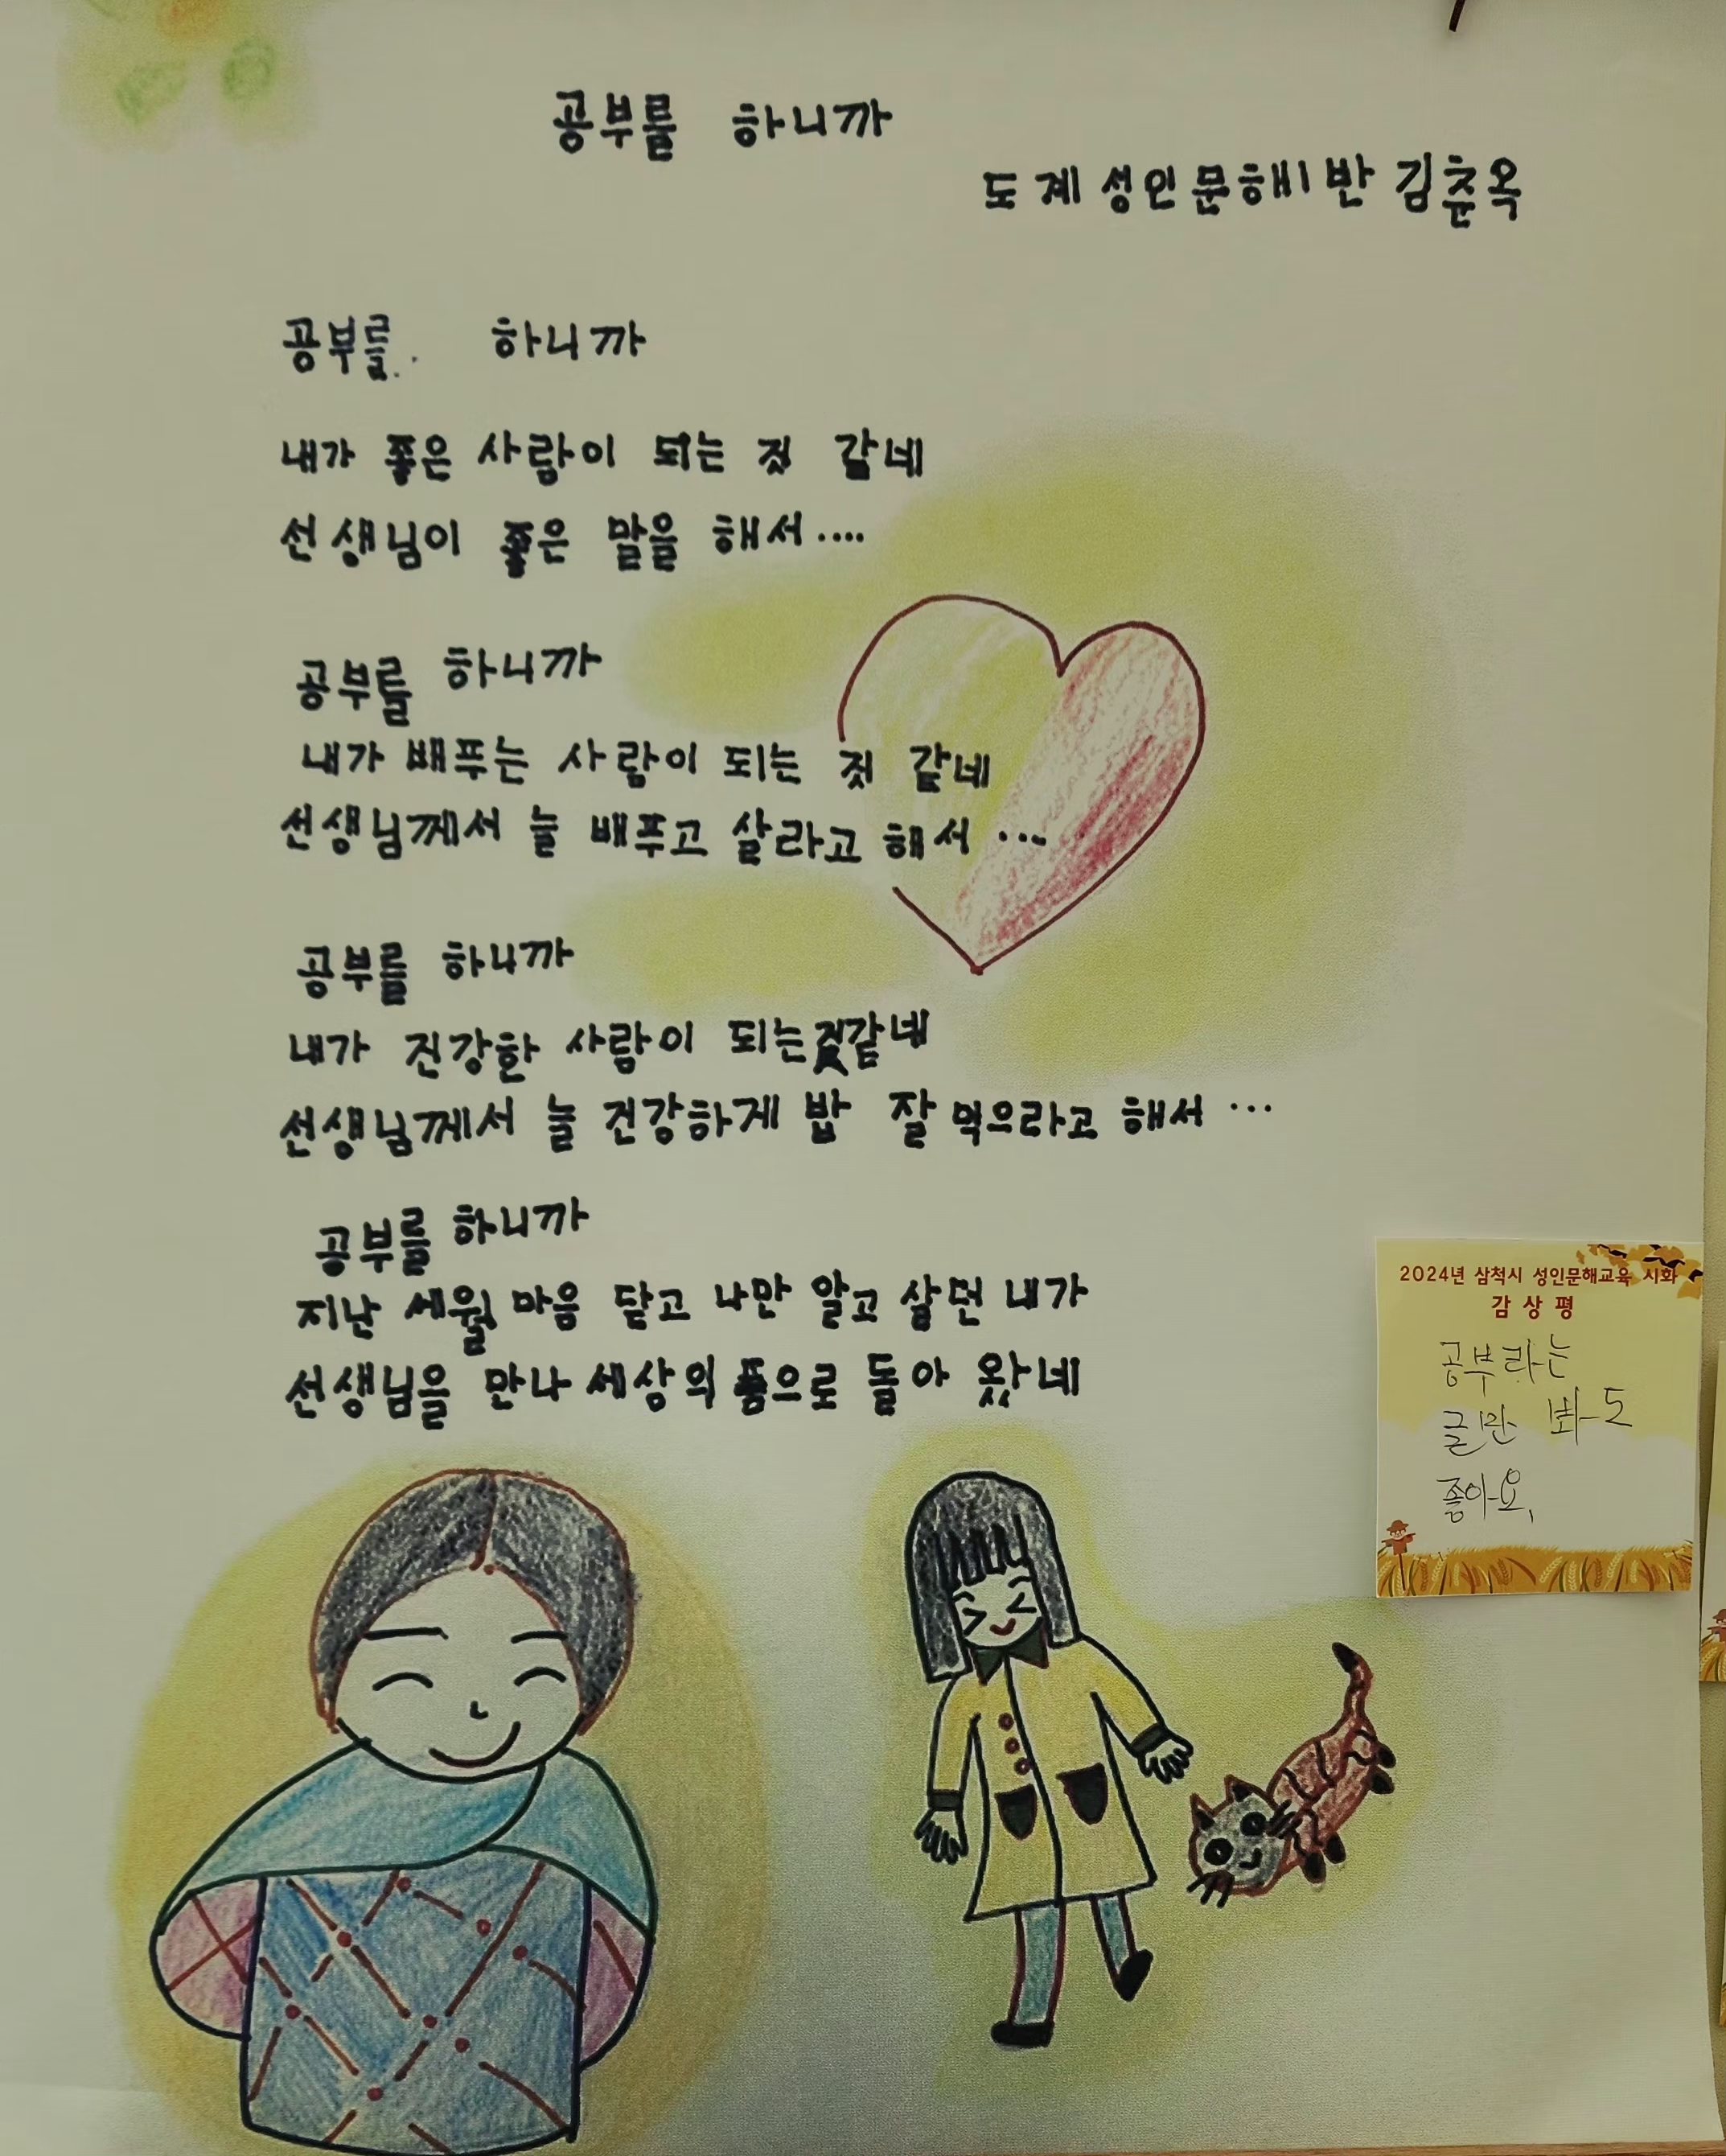 공부를 하니까
도계 성인문해반 김춘옥
공부를. 하니까
내가 좋은 사람이 되는 것 같네
선생님이 좋은 말을 해서....
공부를 하니까
내가 배푸는 사람이 되는 것 같네
선생님께서 늘 배푸고 살라고 해서 ...
공부를 하니까
내가 건강한 사람이 되는것같네
선생님께서 늘 건강하게 밥 잘 먹으라고 해서 ...
공부를 하니까
지난 세월 마음 닫고 나만 알고 살던 내가
선생님을 만나 세상의 품으로 돌아 왔네
2024년 삼척시 성인문해교육 시화
감상평
공부라는
글만 봐도
좋아요,